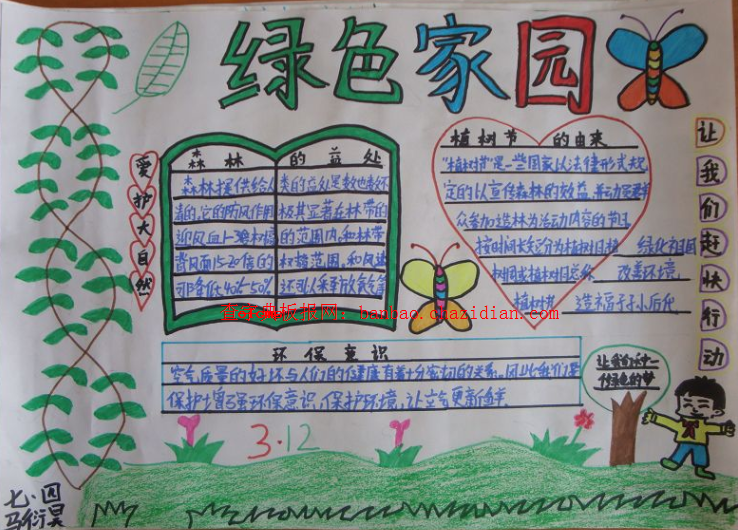 绿色家园
爱护大自然
森林的益处
森林提供给人类的益处是数也数不
清的,它的防风作用极其显著在林带的
迎风面
的范围内,和林带
背风面15-20倍的
范围,和风速
可降低40%-50%
植树节的由来
"植树节"是一些国家以法律形式规
定的以宣传森林的效益,并动员群
众参加造林为活动内容的节日
按时间长短分为植树日植 绿化祖国
树周或植树月总称 改善环境
植树节 造福子孙后代
让我们赶快行动
谷字典板报网:banbao.chazidian.com
环保意识
空气质量的好坏与人们的健康有着十分密切的关系。因此我们要
保护增强环保意识,保护环境,让空气更新鲜。
让我们来一
绿色的梦
3.12
七·四
马衍昊